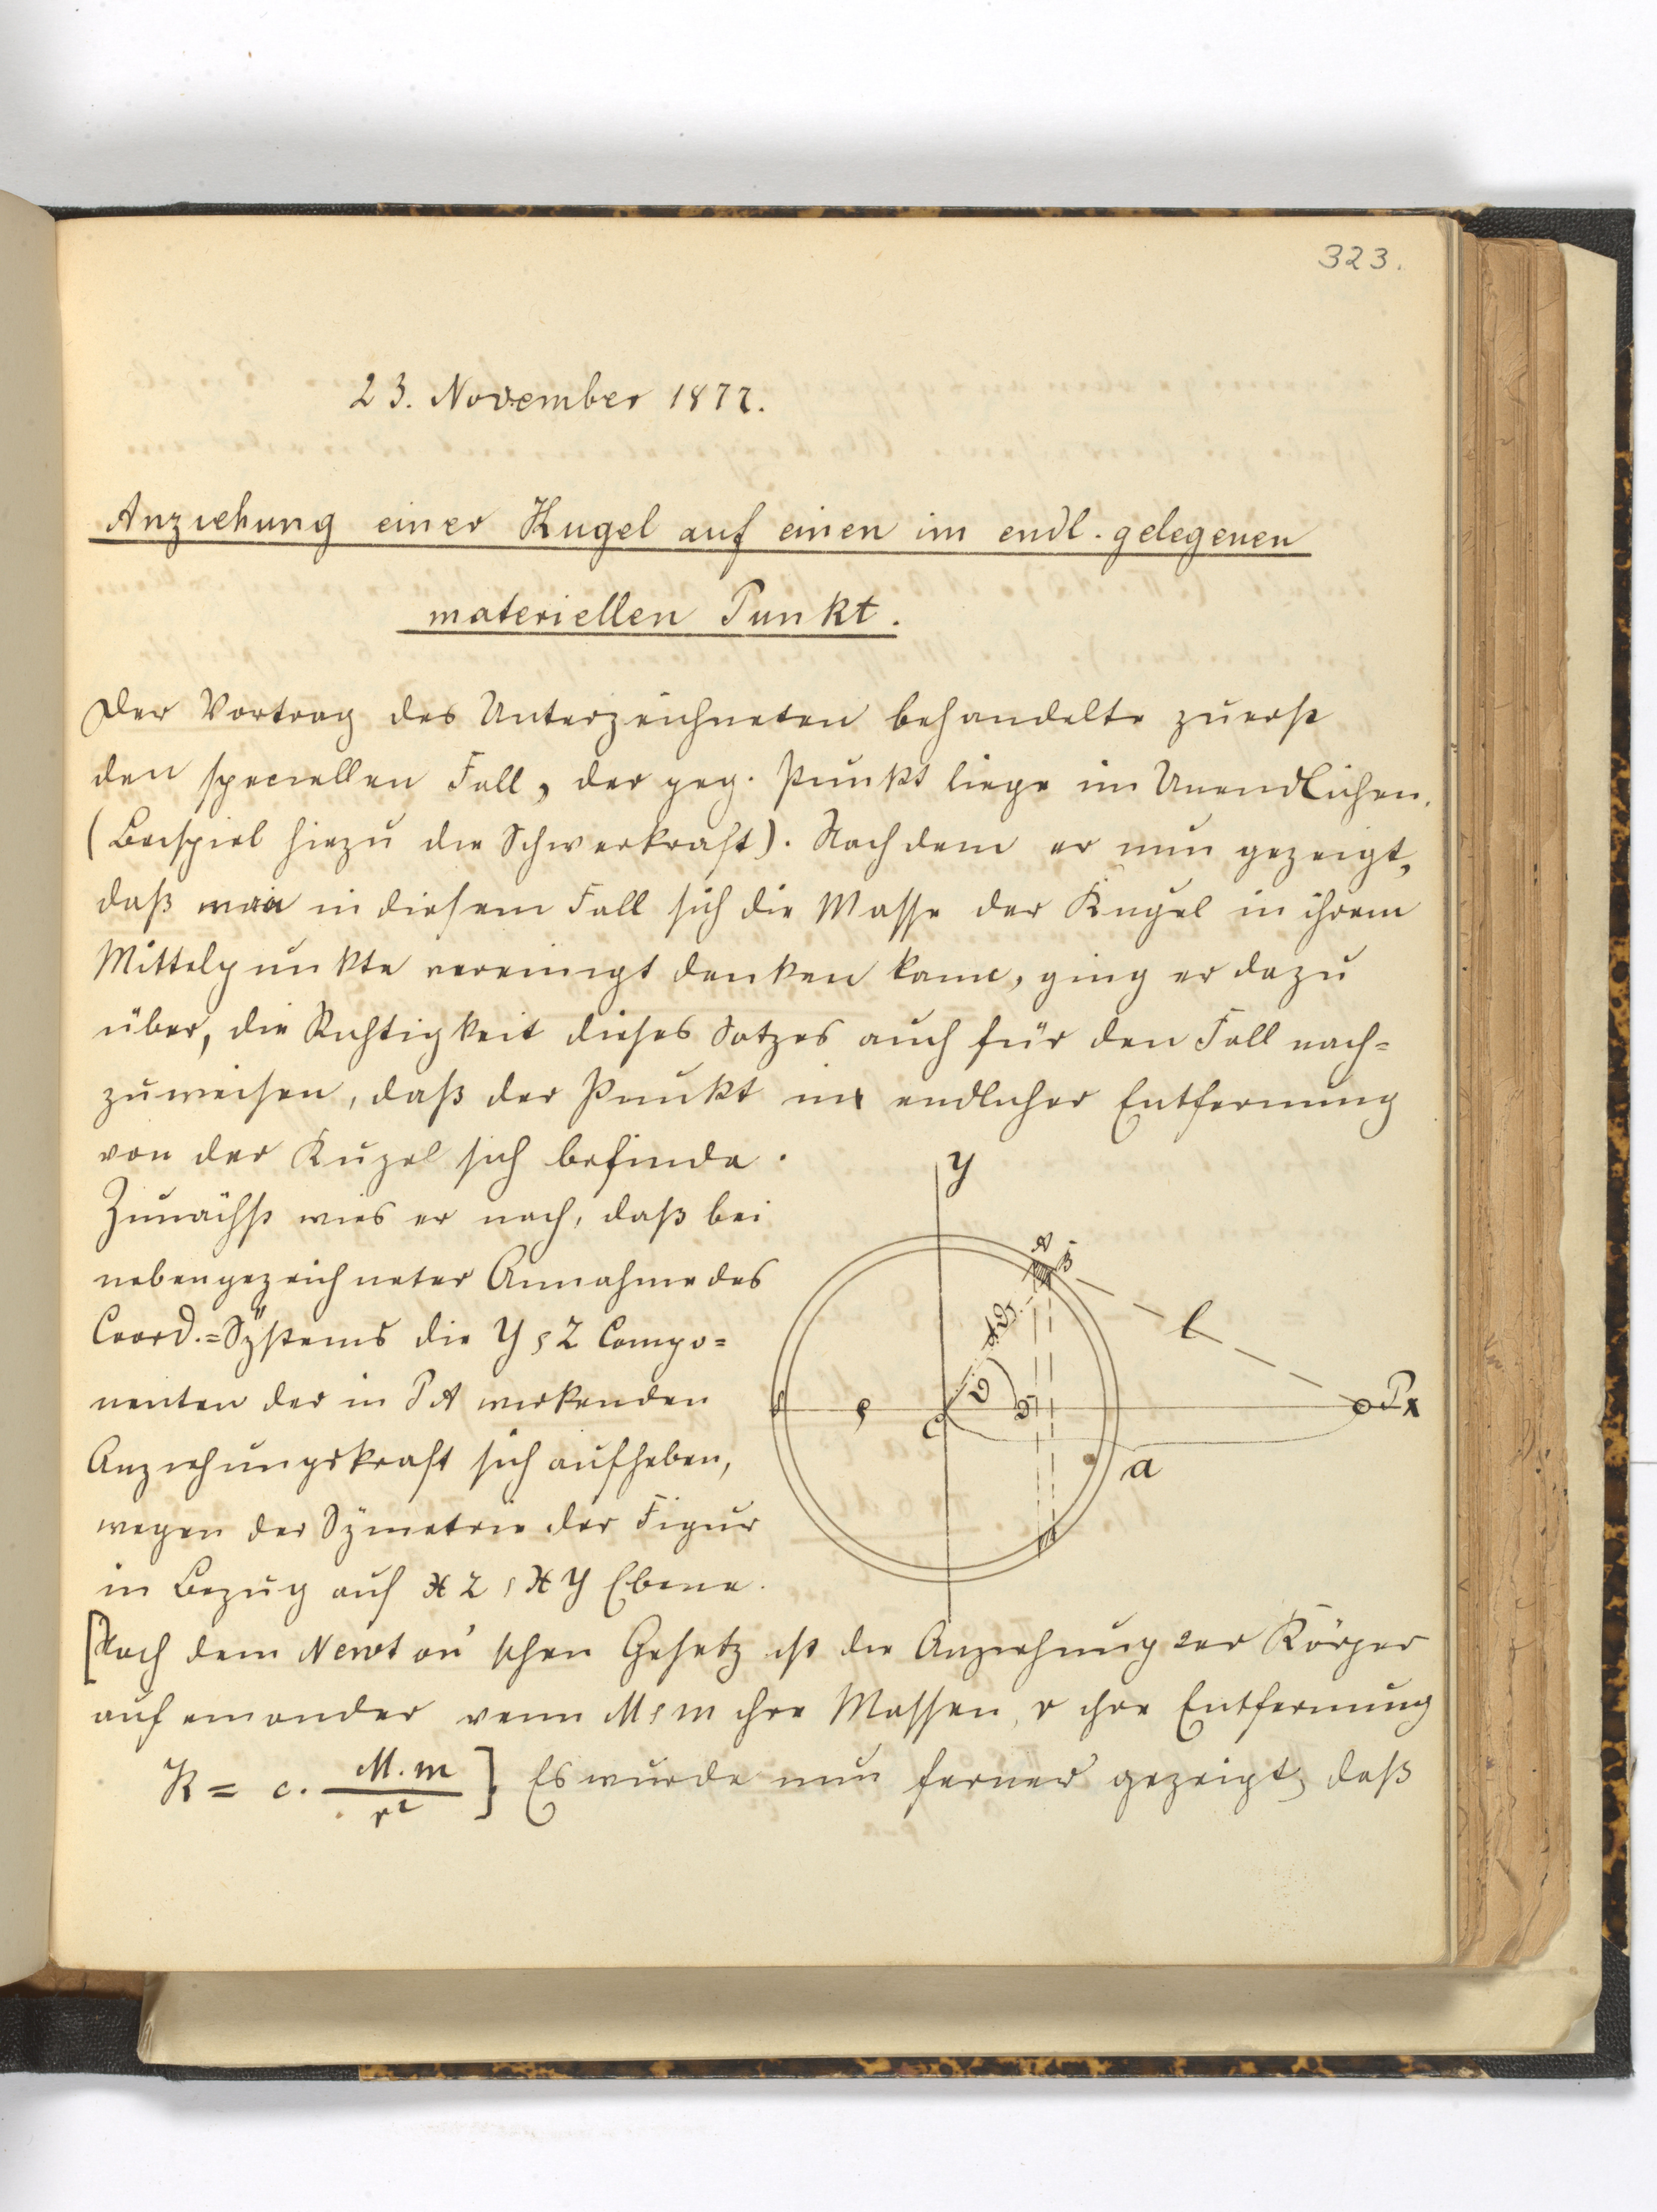 323.
23. November 1877.
Anziehung einer Kugel auf einen im endl. gelegenen
materiellen Punkt.
Der Vortrag des Unterzeichneten behandelte zuerst
den speciellen Fall, der geg. Punkt liege im Unendlichen.
(Beispiel hiezu die Schwerkraft). Nachdem er nun gezeigt,
daß man in diesem Fall sich die Masse der Kugel in ihrem
Mittelpunkte vereinigt denken kann, ging er dazu
über, die Richtigkeit dieses Satzes auch für den Fall nach=
zuweisen, daß der Punkt in endlicher Entfernung
von der Kugel sich befinde.
Zunächst wies er nach, daß bei
nebengezeichneter Annahme des
Coord.=Systems die Y & Z Compo=
nenten der in PA wirkenden
Anziehungskraft sich aufheben,
wegen der Symetrie der Figur
in Bezug auf XZ & XY Ebene.
[Nach dem Newton'schen Gesetz ist die Anziehung der Körper
auf einander wenn M & m ihre Massen, r ihre Entfernung
K = c. M.m / r² ] Es wurde nun ferner gezeigt, daß
y
A
B
l
C
P
x
a